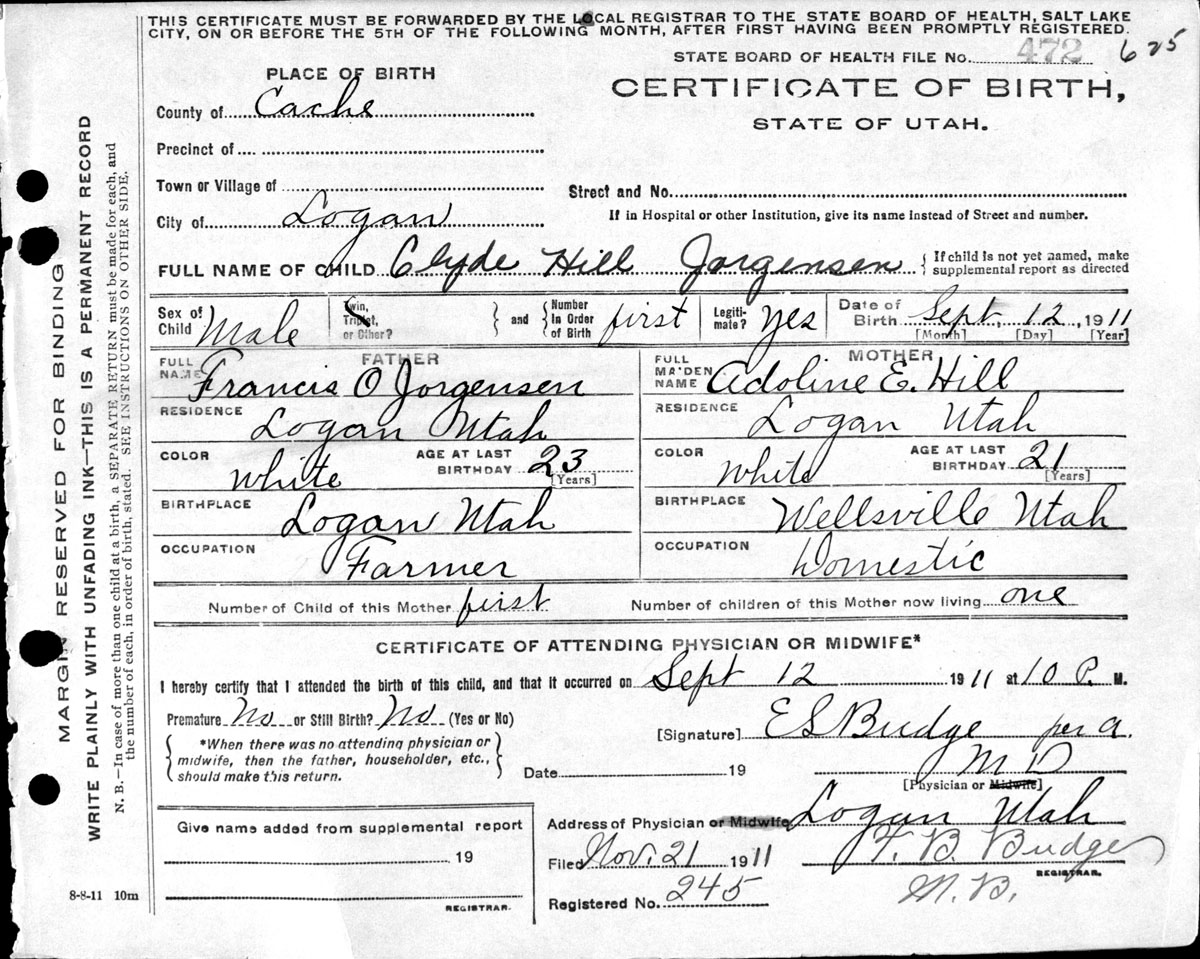 THIS CERTIFICATE MUST BE FORWARDED BY THE LOCAL REGISTRAR TO THE STATE BOARD OF HEALTH, SALT LAKE
CITY, ON OR BEFORE THE 5TH OF THE FOLLOWING MONTH, AFTER FIRST HAVING BEEN PROMPTLY REGISTERED.
STATE BOARD OF HEALTH FILE No. 472 625
PLACE OF BIRTH
CERTIFICATE OF BIRTH,
STATE OF UTAH.
County of Cache
Precinct of
Town or Village of
Street and No.
City of Logan
If in Hospital or other Institution, give its name instead of Street and number.
FULL NAME OF CHILD Clyde Hill Jorgensen { If child is not yet named, make
supplemental report as directed
Sex of Child Male
Twin, Triplet, or Other?
and
Number In Order of Birth first
Legitimate? Yes
Date of Birth Sept, 12, 1911
[Month] [Day] [Year]
FATHER
FULL NAME Francis O Jorgensen
MOTHER
FULL MAIDEN NAME Adoline E. Hill
RESIDENCE Logan Utah
RESIDENCE Logan Utah
COLOR White AGE AT LAST BIRTHDAY 23 [Years]
COLOR White AGE AT LAST BIRTHDAY 21 [Years]
BIRTHPLACE Logan Utah
BIRTHPLACE Wellsville Utah
OCCUPATION Farmer
OCCUPATION Domestic
Number of Child of this Mother first Number of children of this Mother now living one
CERTIFICATE OF ATTENDING PHYSICIAN OR MIDWIFE*
I hereby certify that I attended the birth of this child, and that it occurred on Sept 12 1911 at 10 P. M.
Premature No or Still Birth? No (Yes or No)
[Signature] E S Budge per a.
*When there was no attending physician or
midwife, then the father, householder, etc.,
should make this return.
Date 19
M D
[Physician or Midwife]
Give name added from supplemental report
19
REGISTRAR.
Address of Physician or Midwife Logan Utah
Filed Nov. 21 1911
T. B. Budge
REGISTRAR.
M. B.
Registered No. 245
8-8-11 10m
MARGIN RESERVED FOR BINDING
WRITE PLAINLY WITH UNFADING INK—THIS IS A PERMANENT RECORD
N. B.—In case of more than one child at a birth, a SEPARATE RETURN must be made for each, and
the number of each, in order of birth, stated. SEE INSTRUCTIONS ON OTHER SIDE.